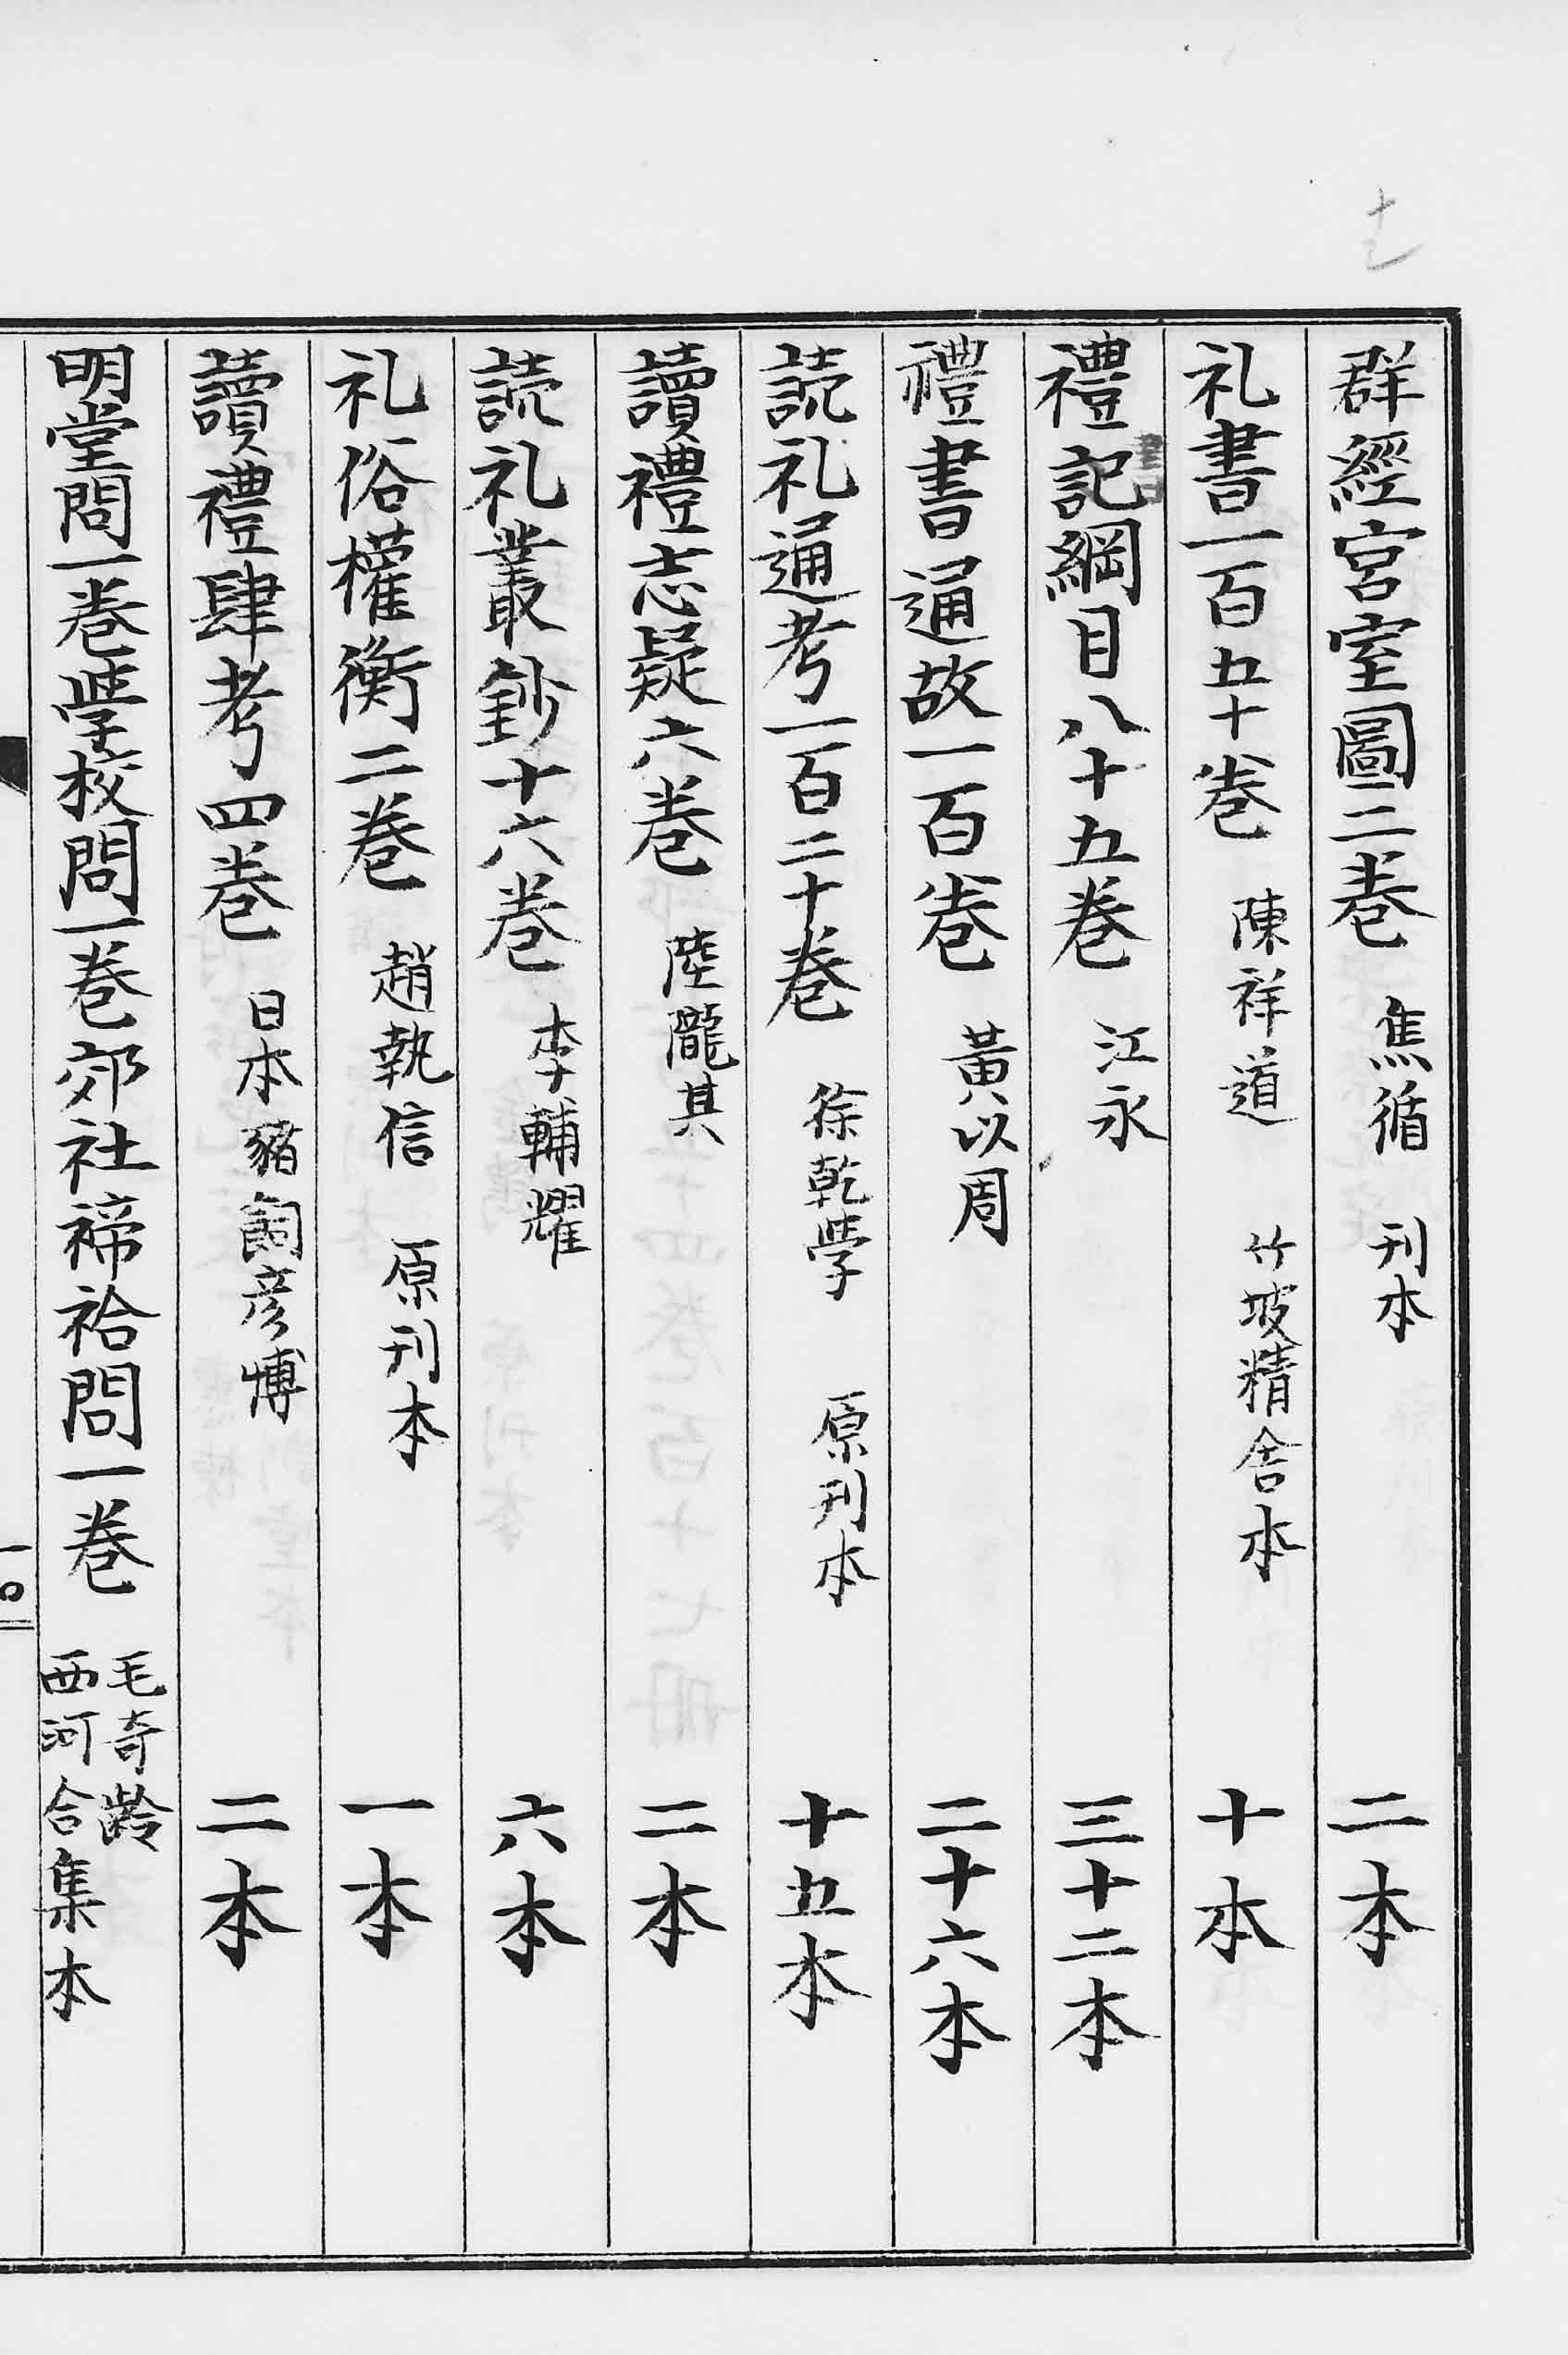 群經宮室圖二卷 焦循 刊本 二本
礼書一百五十卷 陳祥道 竹坡精舍本 十本
禮記綱目八十五卷 江永 三十二本
書
禮書通故一百卷 黃以周 二十六本
読礼通考一百二十卷 徐乾學 原刊本 十五本
讀禮志疑六卷 陸隴其 二本
読礼叢鈔十六卷 李輔耀 六本
礼俗權衡二卷 趙執信 原刊本 一本
讀禮肆考四卷 日本豬飼彦博 二本
明堂問一卷學校問一卷郊社禘祫問一卷 毛奇齡
西河合集本